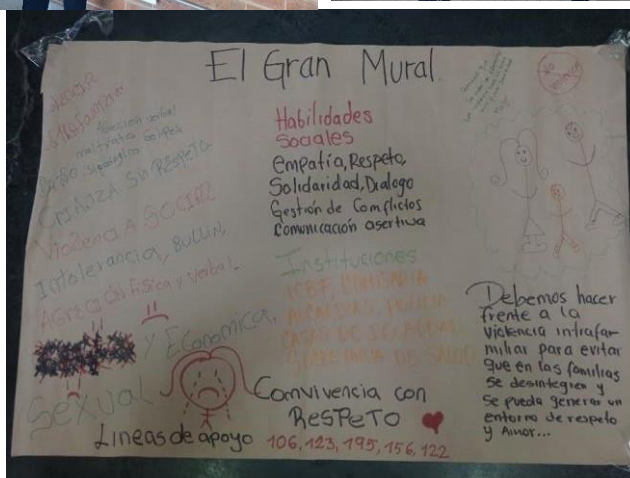 El Gran Mural
Agresión verbal
maltrato Golpes
Crianza sin Respeto.
Violencia Social
Intolerancia, BULLIN,
Agreción física y verbal.
y Economica,
Sexual
Habilidades
Sociales
Empatía, Respeto,
Solidaridad, Dialogo
Gestión de Comflictos
Comunicación asertiva
Instituciones
ICBF, COMISARIA
ALCALDIAS, POLICIA
SECRETARIA DE SALUD
Convivencia con
ResPeTO
Lineas de apoyo 106, 123, 195, 156, 122
NO
Debemos hacer
frente a la
violencia intrafar
miliar para evitar
que en las familias
se desintegren y
se pueda generar un
entorno de respeto
y Amor...